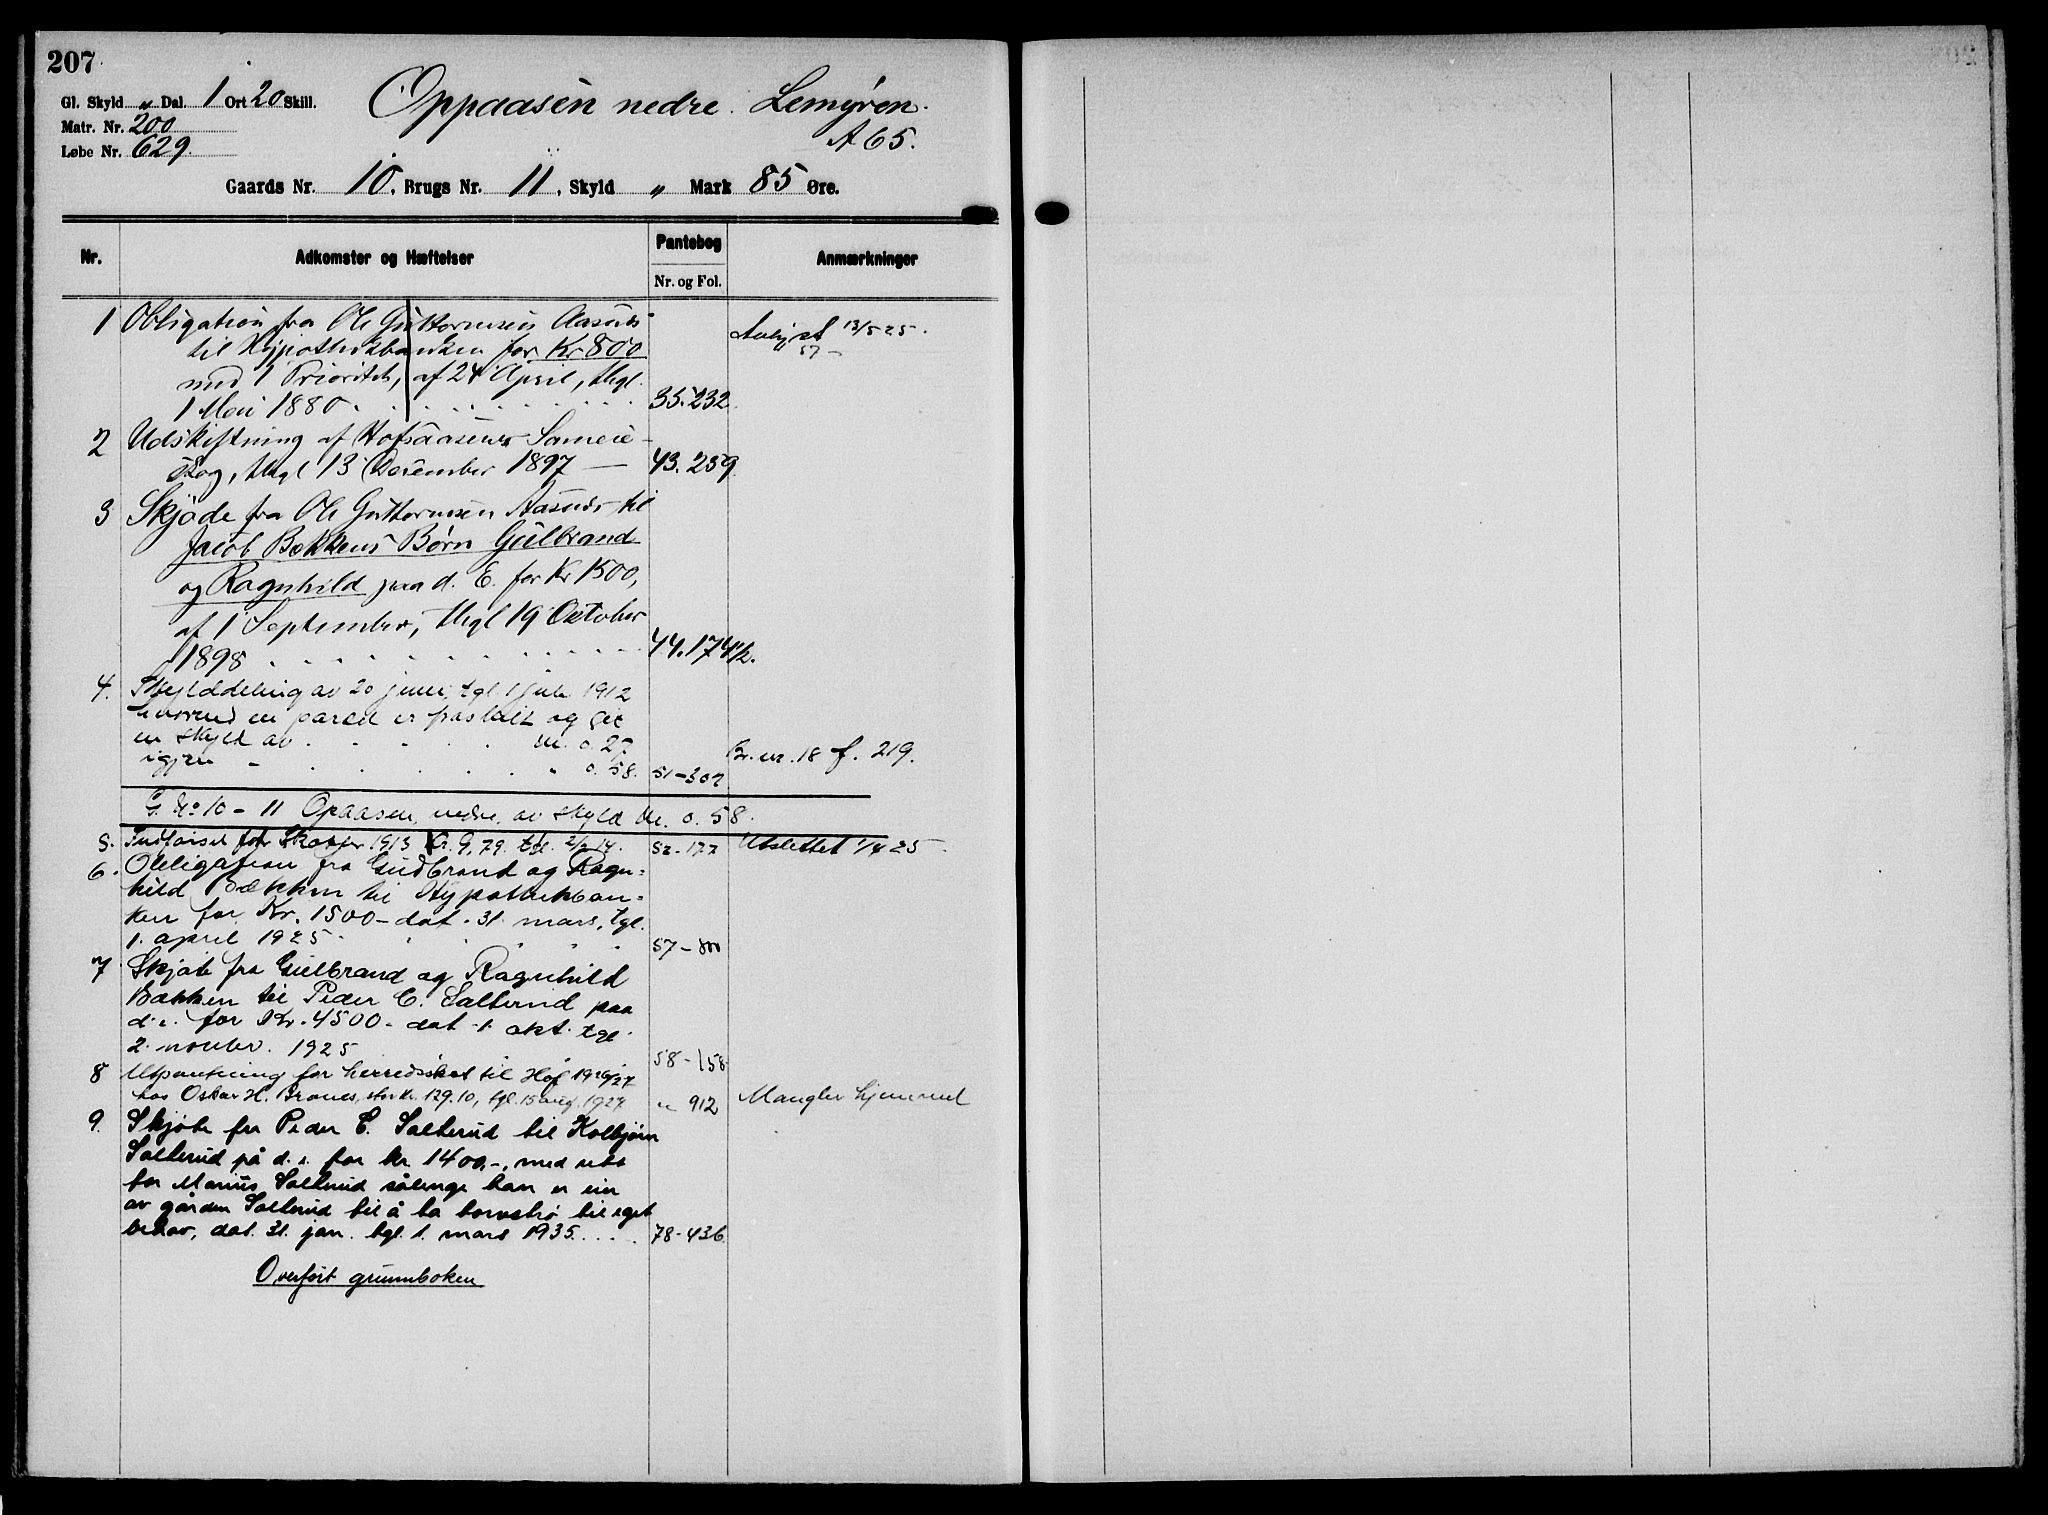 207
Gl. Skyld " Dal. 1 Ort 20 Skill.
Matr. Nr. 200
Løbe Nr. 629.
Oppaasen nedre. Lemyren.
A 65.
Gaards Nr. 10, Brugs Nr. 11, Skyld " Mark 85 Øre.
Nr. Adkomster og Hæftelser Pantebog Anmærkninger
Nr. og Fol.
1 Obligation fra Ole Guttormsen Aasnes
til Hypothekbanken for Kr 800
med 1 Prioritet, af 24 April, thgl.
1 Mai 1880 35.232
Avlyst 13/5 25.
57 -
2 Udskiftning af Hofsaasens Sameie-
skog, thgl 13 Desember 1897 — 43.259
3 Skjøde fra Ole Guttormsen Aasnes til
Jacob Bækkens Børn Gulbrand
og Ragnhild paa d. E. for Kr 1500,
af 1 September, thgl 19 Oktober
1898 44.174 1/2.
4. Skylddeling av 20 juni, tgl 1 juli 1912
hvorved en parcel er fraskilt og git
en skyld av m. 0.27
igjen - " 0.58. 51-307
Br. nr. 18 f. 219.
G. No 10 - 11 Opaasen nedre, av skyld m. 0.58.
5. Indførsel for Skatter 1913 Kr. 9,79. tgl. 2/2 14. 52-177 Utslettet 1/4 25.
6. Obligation fra Gudbrand og Ragn=
hild Bækken til Hypothekban=
ken for Kr. 1500 - dat. 31. mars, tgl.
1. april 1925. 57 - 800
7 Skjøte fra Gulbrand og Ragnhild
Bækken til Peder C. Salterud paa
d. e. for Kr. 4500 - dat. 1. okt. tgl.
2. novbr. 1925 58-158
8 Utpantning for herredsskat til Hof 1926/27
hos Oskar H. Branes, stor Kr. 129.10, tgl. 15 aug. 1927 " 912 Mangler hjemmel
9. Skjøte fra Peder C. Salterud til Kolbjørn
Salterud på d. e. for kr. 1400,-, med rett
for Marius Salterud sålenge han er eier
av gården Salterud til å ta torvstrø til eget
behov, dat. 31. jan. tgl. 1. mars 1935. 78-436
Overført grunnboken